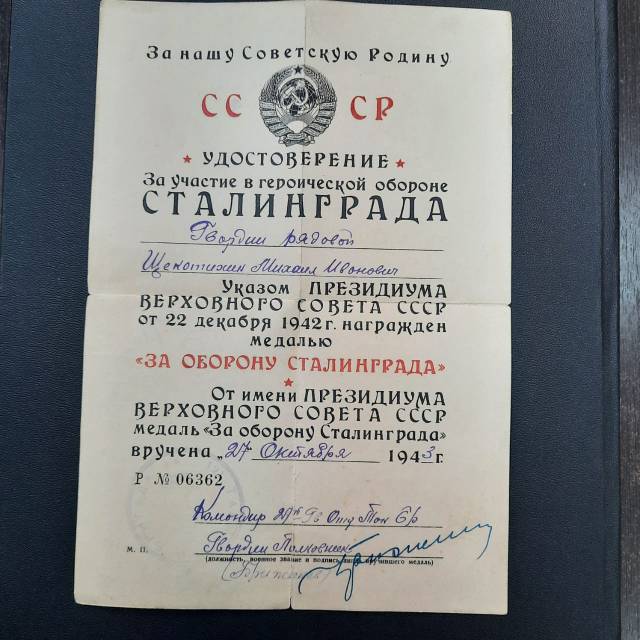 За нашу Советскую Родину
СС СР
УДОСТОВЕРЕНИЕ
За участие в героической обороне
СТАЛИНГРАДА
Гвардии рядовой
Щекотихин Михаил Иванович
Указом ПРЕЗИДИУМА
ВЕРХОВНОГО СОВЕТА СССР
от 22 декабря 1942 г. награжден
медалью
«ЗА ОБОРОНУ СТАЛИНГРАДА»
От имени ПРЕЗИДИУМА
ВЕРХОВНОГО СОВЕТА СССР
медаль «За оборону Сталинграда»
вручена „27" Октября 1943 г.
Р № 06362
Командир 29й Гв Отд Тан Бр
М. П. Гвардии Полковник
(должность, военное звание и подпись лица, вручившего медаль)